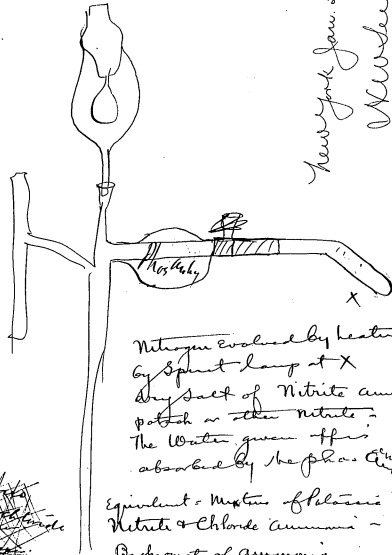 New York Jan.
Phos Anhy
Nitrogen Evolved by heatin
by Spirit lamp at X
dry salt of Nitrite am
potash or other Nitrite -
The Water given off is
absorbed by the phos an
X
Equivalent = Mixture of Potassic
Nitrite & Chloride Ammonia -
of Ammonia